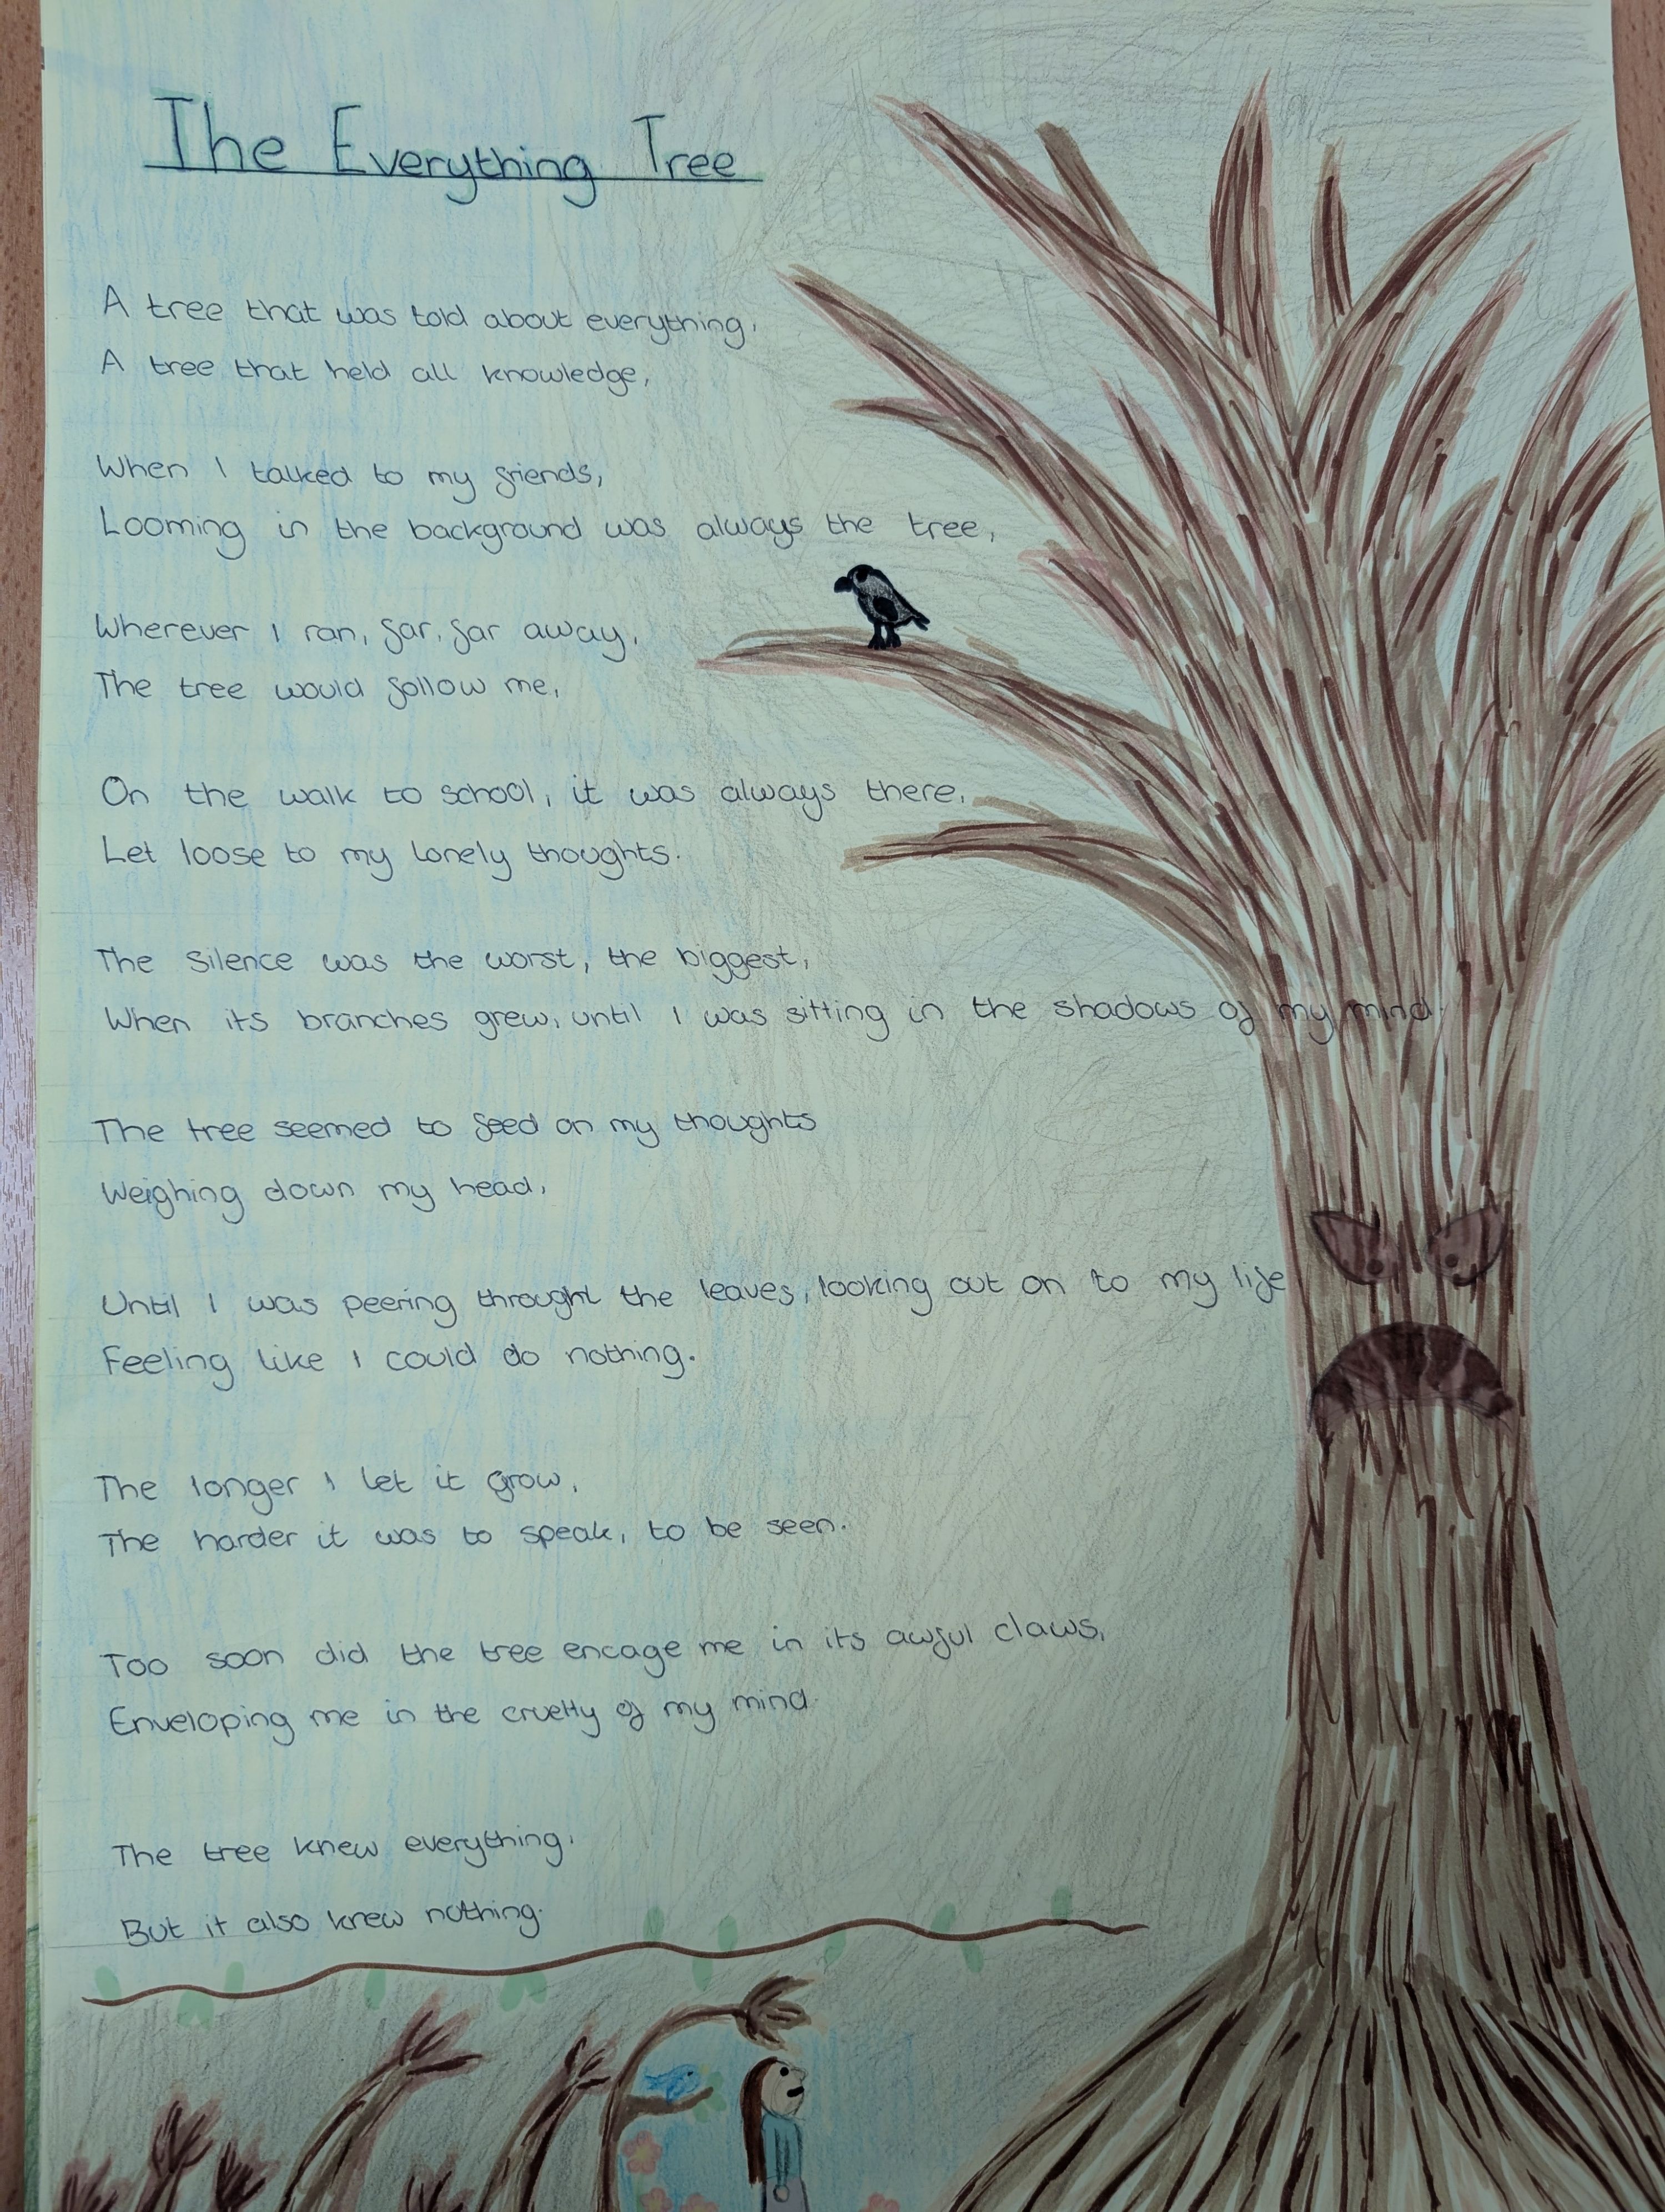 The Everything Tree
A tree that was told about everything,
A tree that held all knowledge,
When I talked to my friends,
Looming in the background was always the tree,
Wherever I ran, far, far away,
The tree would follow me,
On the walk to school, it was always there,
Let loose to my lonely thoughts.
The silence was the worst, the biggest,
When its branches grew, until I was sitting in the shadows of my mind.
The tree seemed to feed on my thoughts
Weighing down my head,
Until I was peering throught the leaves, looking out on to my life
Feeling like I could do nothing.
The longer I let it grow,
The harder it was to speak, to be seen.
Too soon did the tree encage me in its awful claws,
Enveloping me in the cruelty of my mind.
The tree knew everything,
But it also knew nothing.